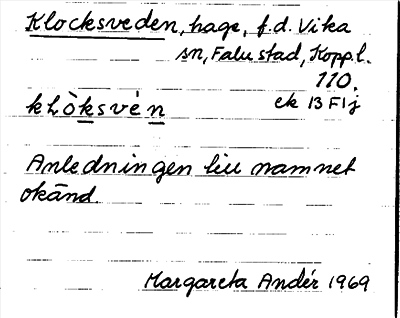 Klocksveden, hage, f.d. Vika
sn, Falu stad, Kopp.l.
110.
ek 13 F1j
khòksvèn
Anledningen till namnet
okänd.
Margareta Andér 1969